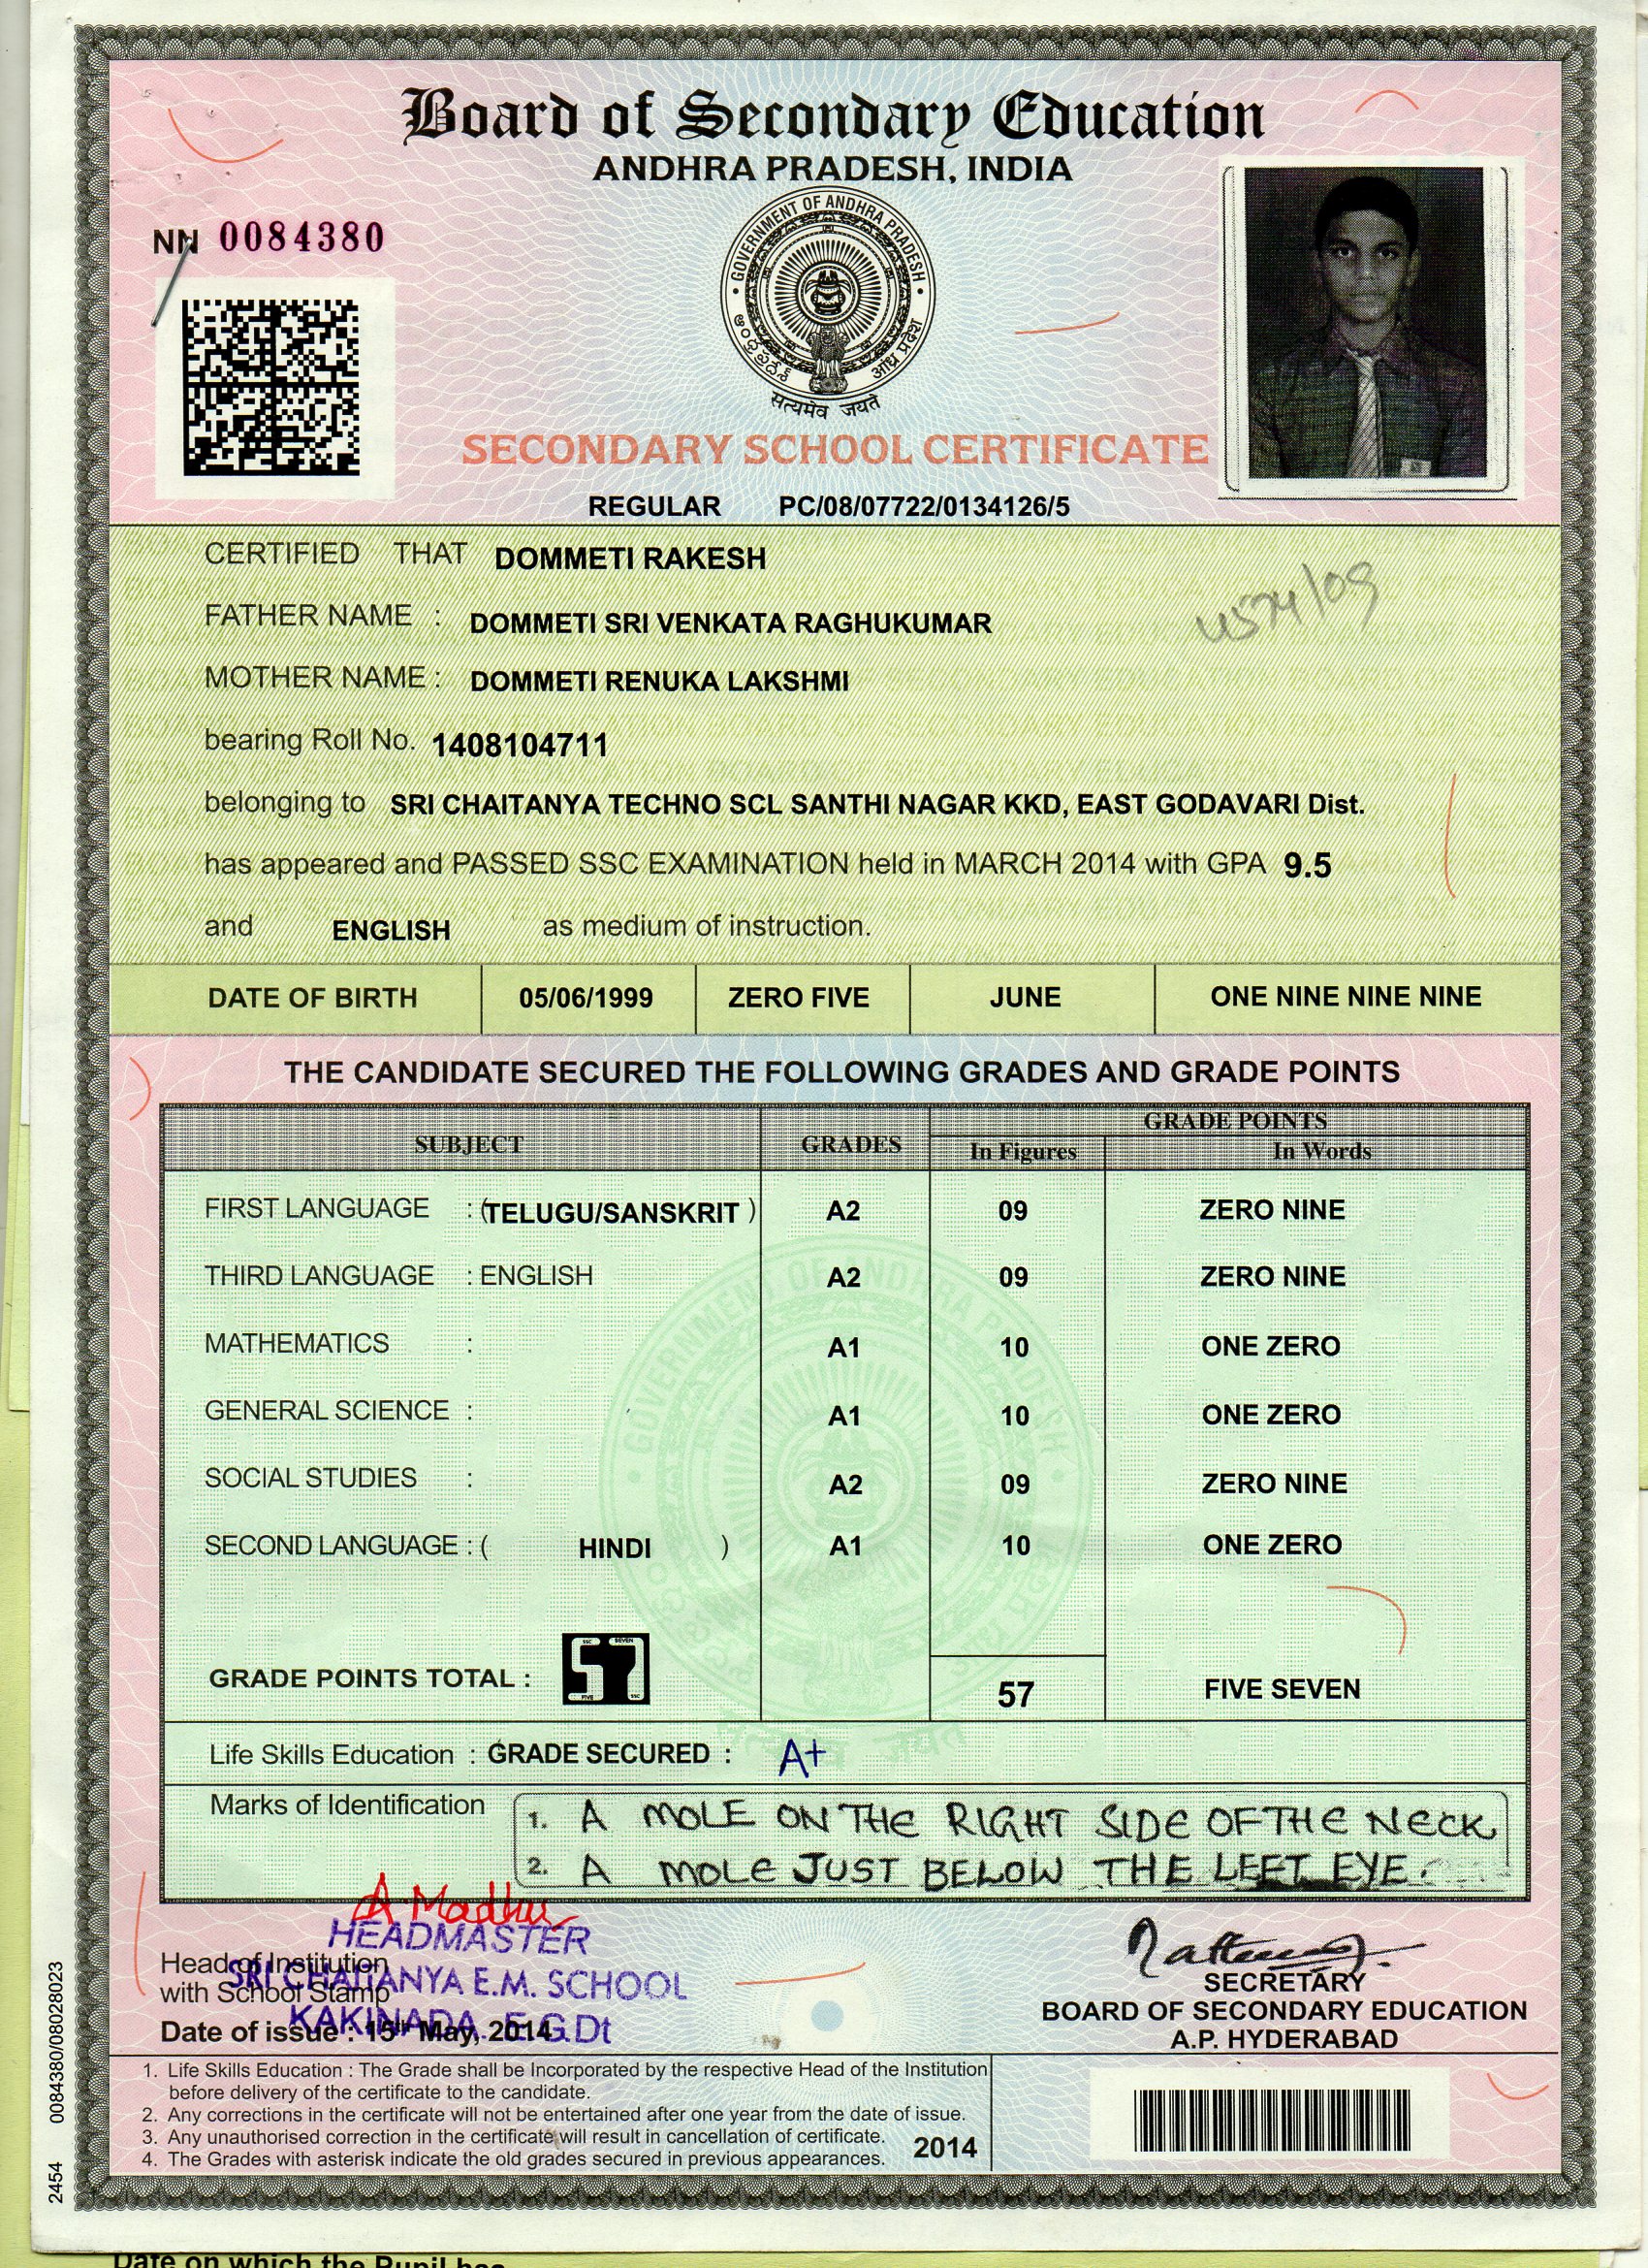 Board of Secondary Education
ANDHRA PRADESH, INDIA
NN 0084380
GOVERNMENT OF ANDHRA PRADESH
आंध्र प्रदेश
सत्यमेव जयते
SECONDARY SCHOOL CERTIFICATE
REGULAR PC/08/07722/0134126/5
CERTIFIED THAT DOMMETI RAKESH
FATHER NAME : DOMMETI SRI VENKATA RAGHUKUMAR
MOTHER NAME : DOMMETI RENUKA LAKSHMI
bearing Roll No. 1408104711
belonging to SRI CHAITANYA TECHNO SCL SANTHI NAGAR KKD, EAST GODAVARI Dist.
has appeared and PASSED SSC EXAMINATION held in MARCH 2014 with GPA 9.5
and ENGLISH as medium of instruction.
DATE OF BIRTH 05/06/1999 ZERO FIVE JUNE ONE NINE NINE NINE
THE CANDIDATE SECURED THE FOLLOWING GRADES AND GRADE POINTS
SUBJECT GRADES GRADE POINTS
In Figures In Words
FIRST LANGUAGE : (TELUGU/SANSKRIT) A2 09 ZERO NINE
THIRD LANGUAGE : ENGLISH A2 09 ZERO NINE
MATHEMATICS : A1 10 ONE ZERO
GENERAL SCIENCE : A1 10 ONE ZERO
SOCIAL STUDIES : A2 09 ZERO NINE
SECOND LANGUAGE : ( HINDI ) A1 10 ONE ZERO
GRADE POINTS TOTAL : 57 57 FIVE SEVEN
Life Skills Education : GRADE SECURED : A+
Marks of Identification
1. A MOLE ON THE RIGHT SIDE OF THE NECK
2. A MOLE JUST BELOW THE LEFT EYE.
A Madhu
HEADMASTER
SRI CHAITANYA E.M. SCHOOL
KAKINADA. E.G.Dt
Head of Institution
with School Stamp
Date of issue : 15th May, 2014
SECRETARY
BOARD OF SECONDARY EDUCATION
A.P. HYDERABAD
1. Life Skills Education : The Grade shall be Incorporated by the respective Head of the Institution
before delivery of the certificate to the candidate.
2. Any corrections in the certificate will not be entertained after one year from the date of issue.
3. Any unauthorised correction in the certificate will result in cancellation of certificate.
4. The Grades with asterisk indicate the old grades secured in previous appearances.
2014
2454 0084380/08028023
Date on which the Pupil has